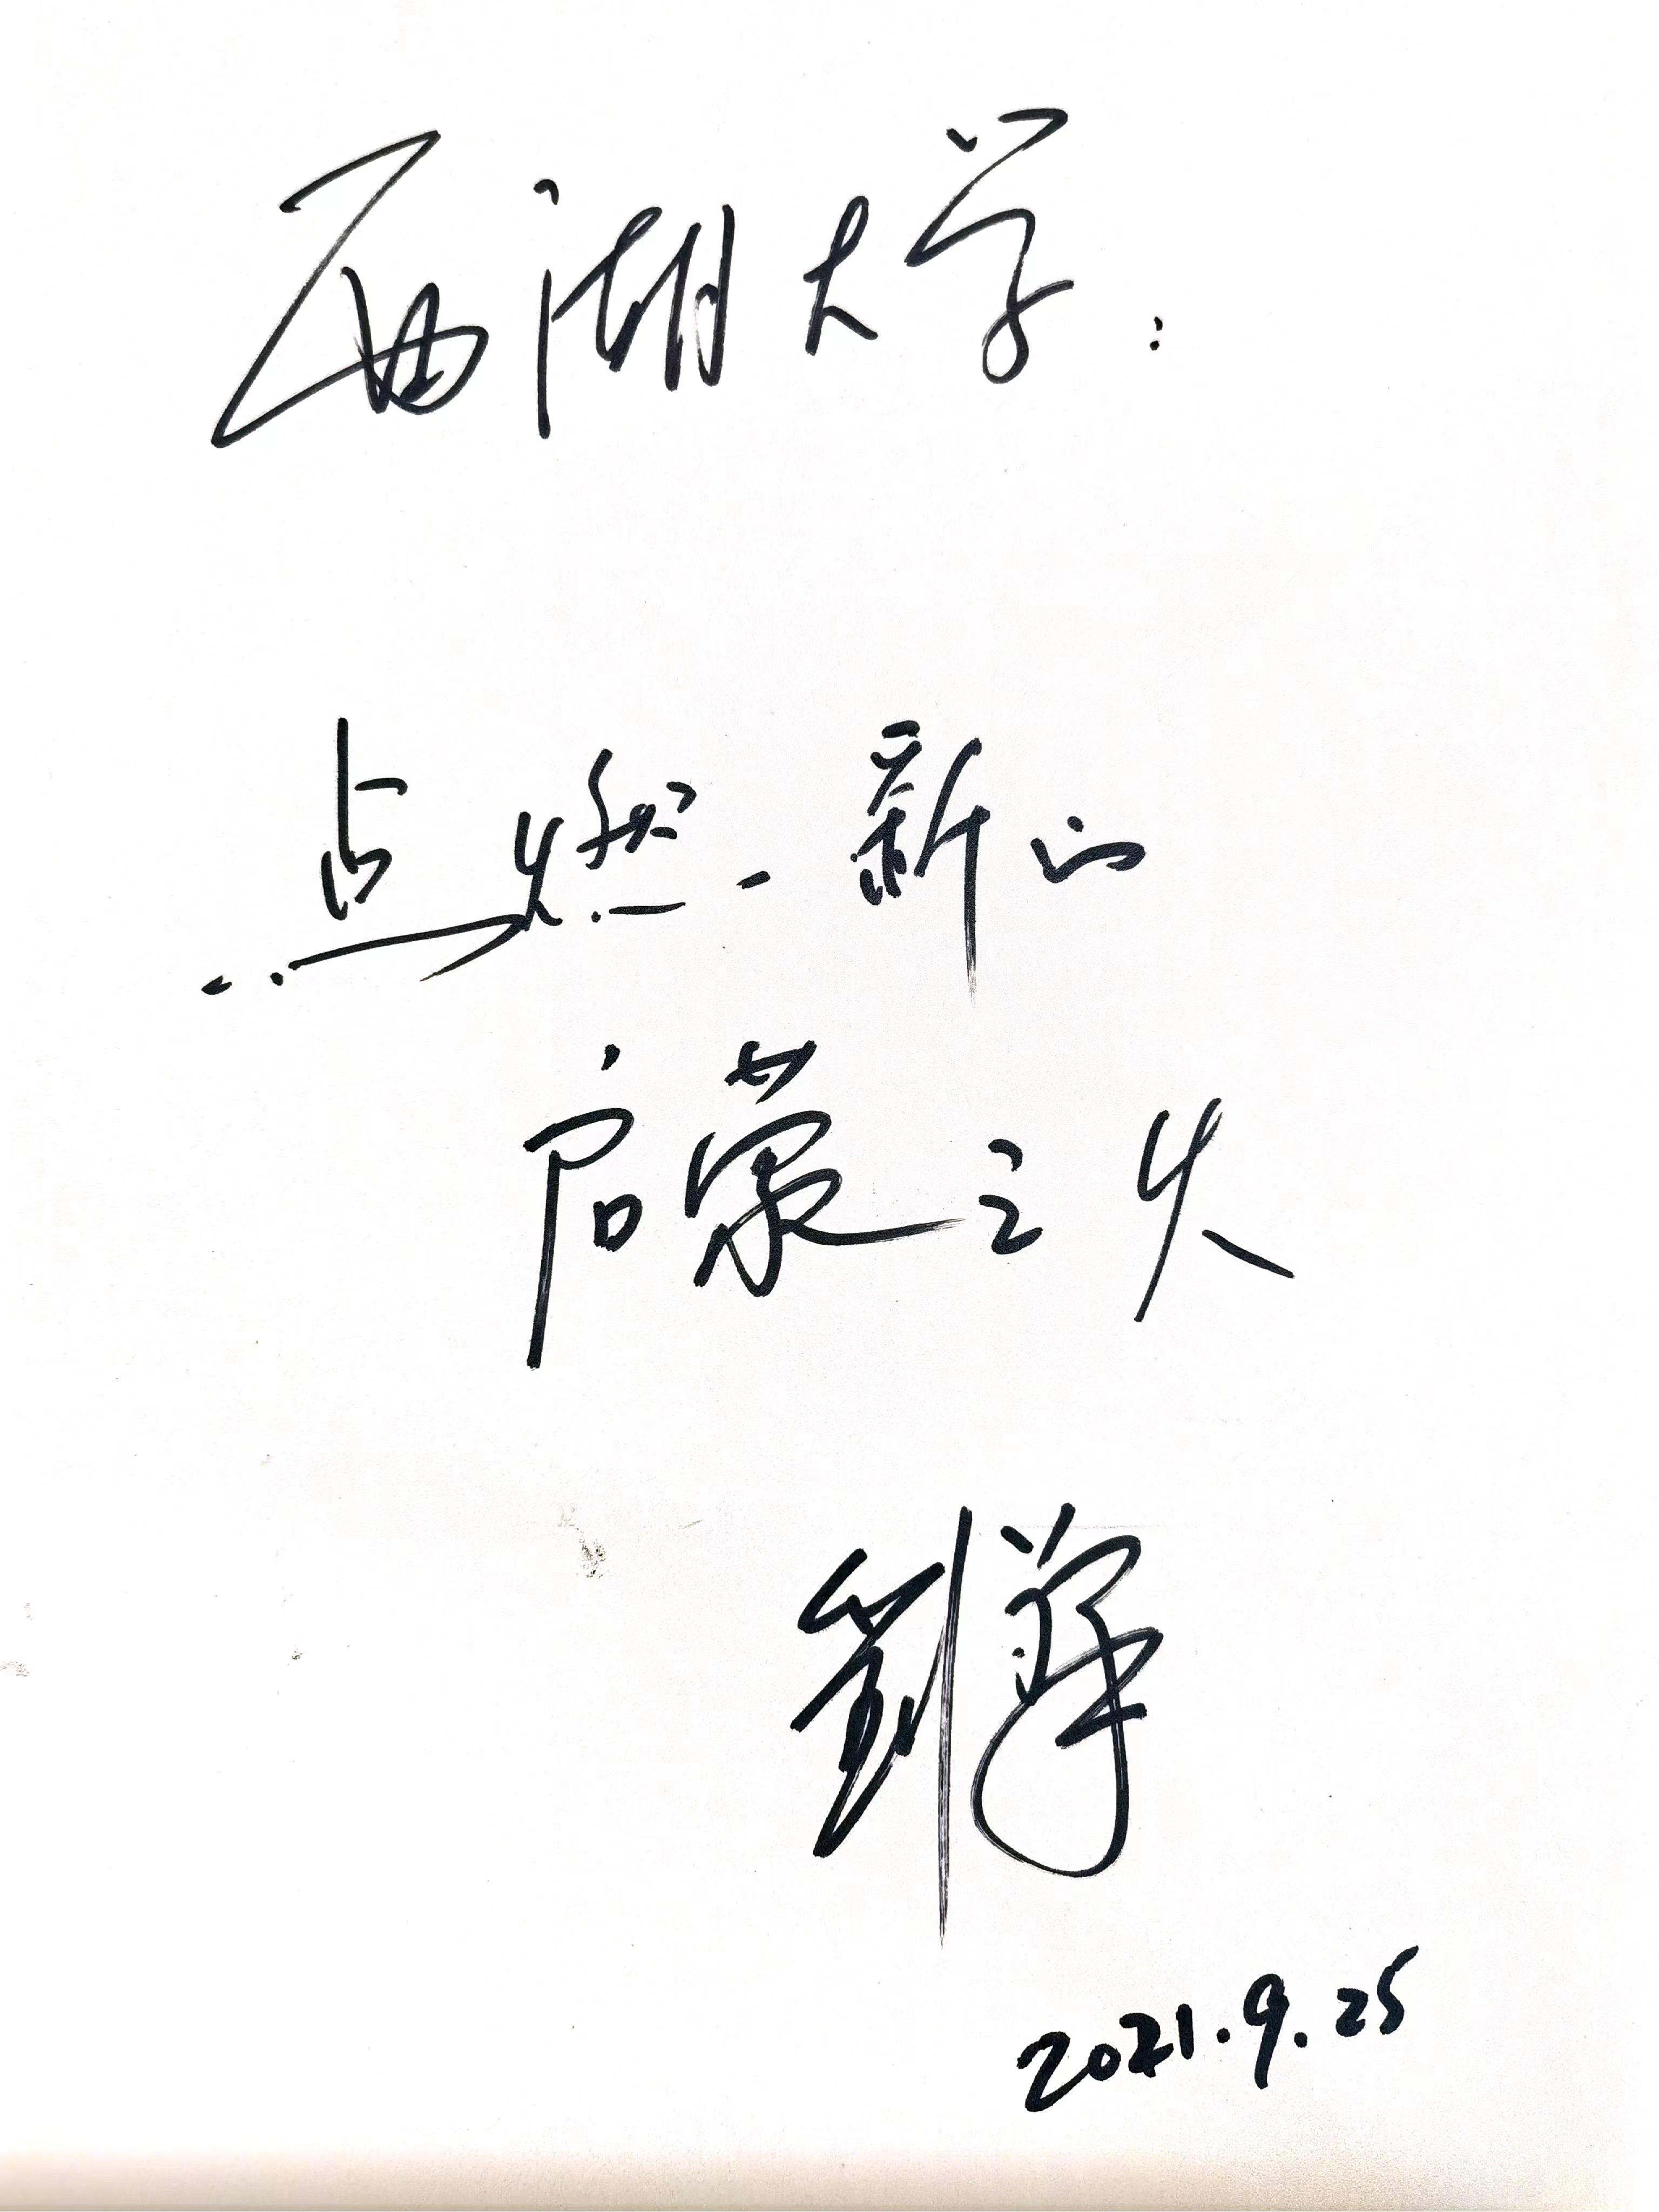 西湖大学：
点燃一新的
启蒙之火
劉擎
2021.9.25